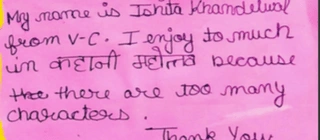 My name is Ishita Khandelwal
from V-C. I enjoy to much
in कहानी महोत्सव because
there are too many
characters.
Thank You